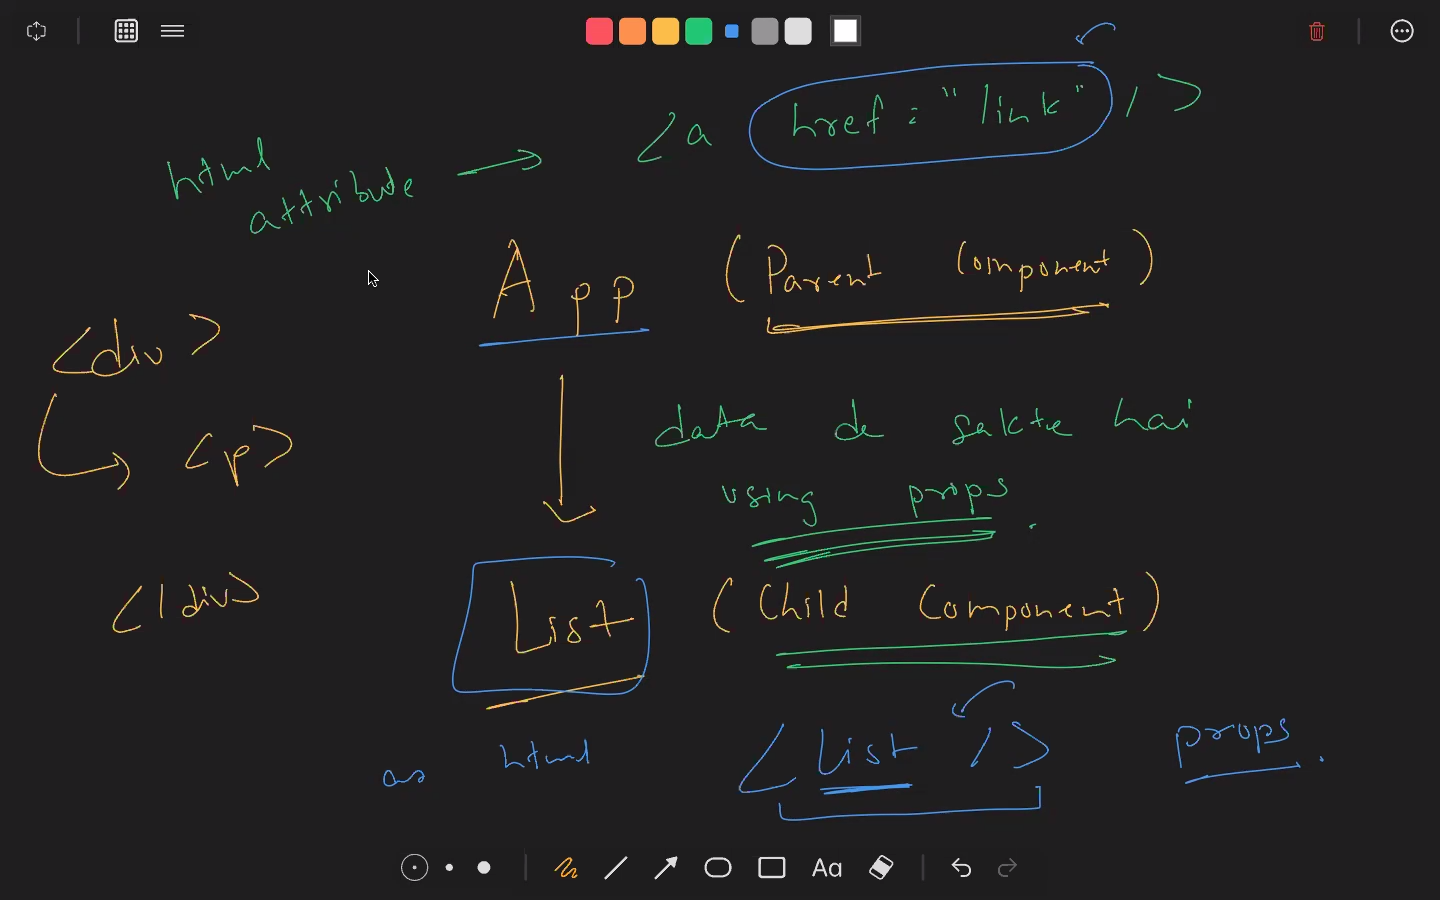 <a href : "link" />
html
attribute
App (Parent Component)
<div>
data de sakte hai
<p>
using props
</div>
List (Child Component)
<List />
props
as html
Aa